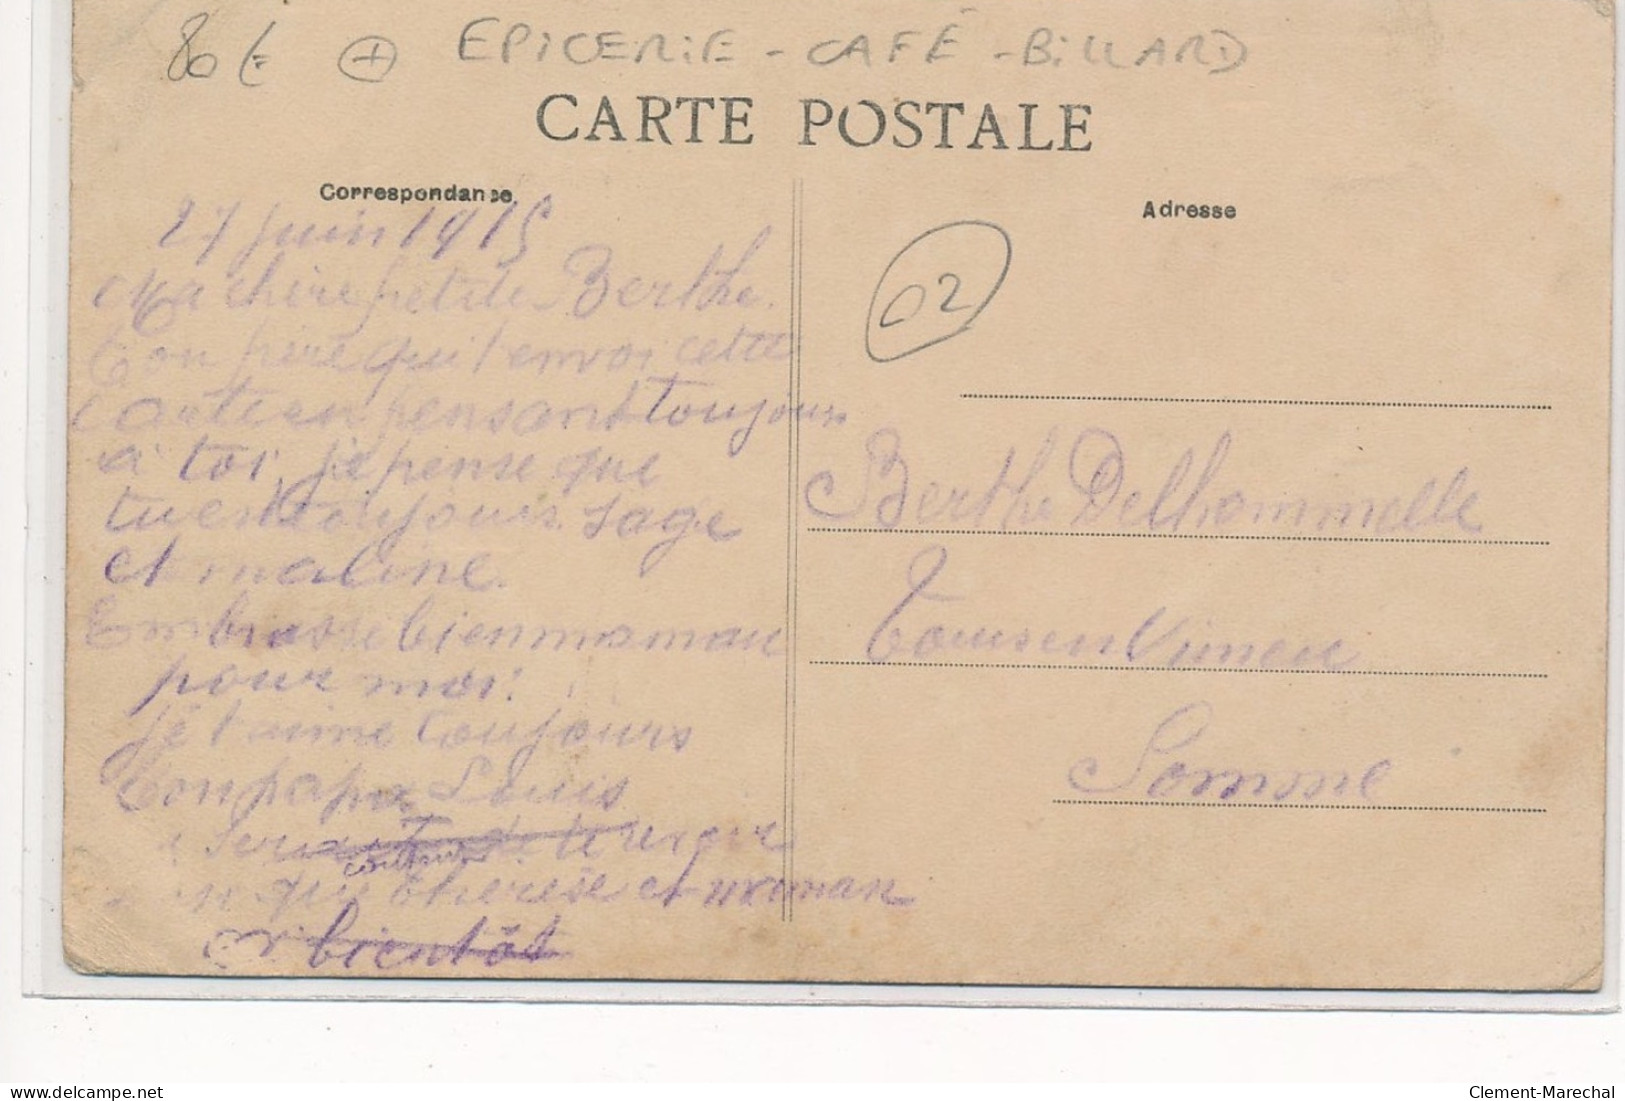 80 € + EPICERIE - CAFÉ - BILLARD
CARTE POSTALE
Correspondance
27 juin 1915
Ma chère petite Berthe.
Ton père qui t'envoi cette
carte en pensant toujours
à toi, je pense que
tu est toujours sage
et maline.
Embrasse bien maman
pour moi.
Je t'aime toujours
ton papa Louis
que Therese et maman
bientôt
Adresse
02
Berthe Delhommelle
Tours en Vimeu
Somme
delcampe.net
Clement-Marechal